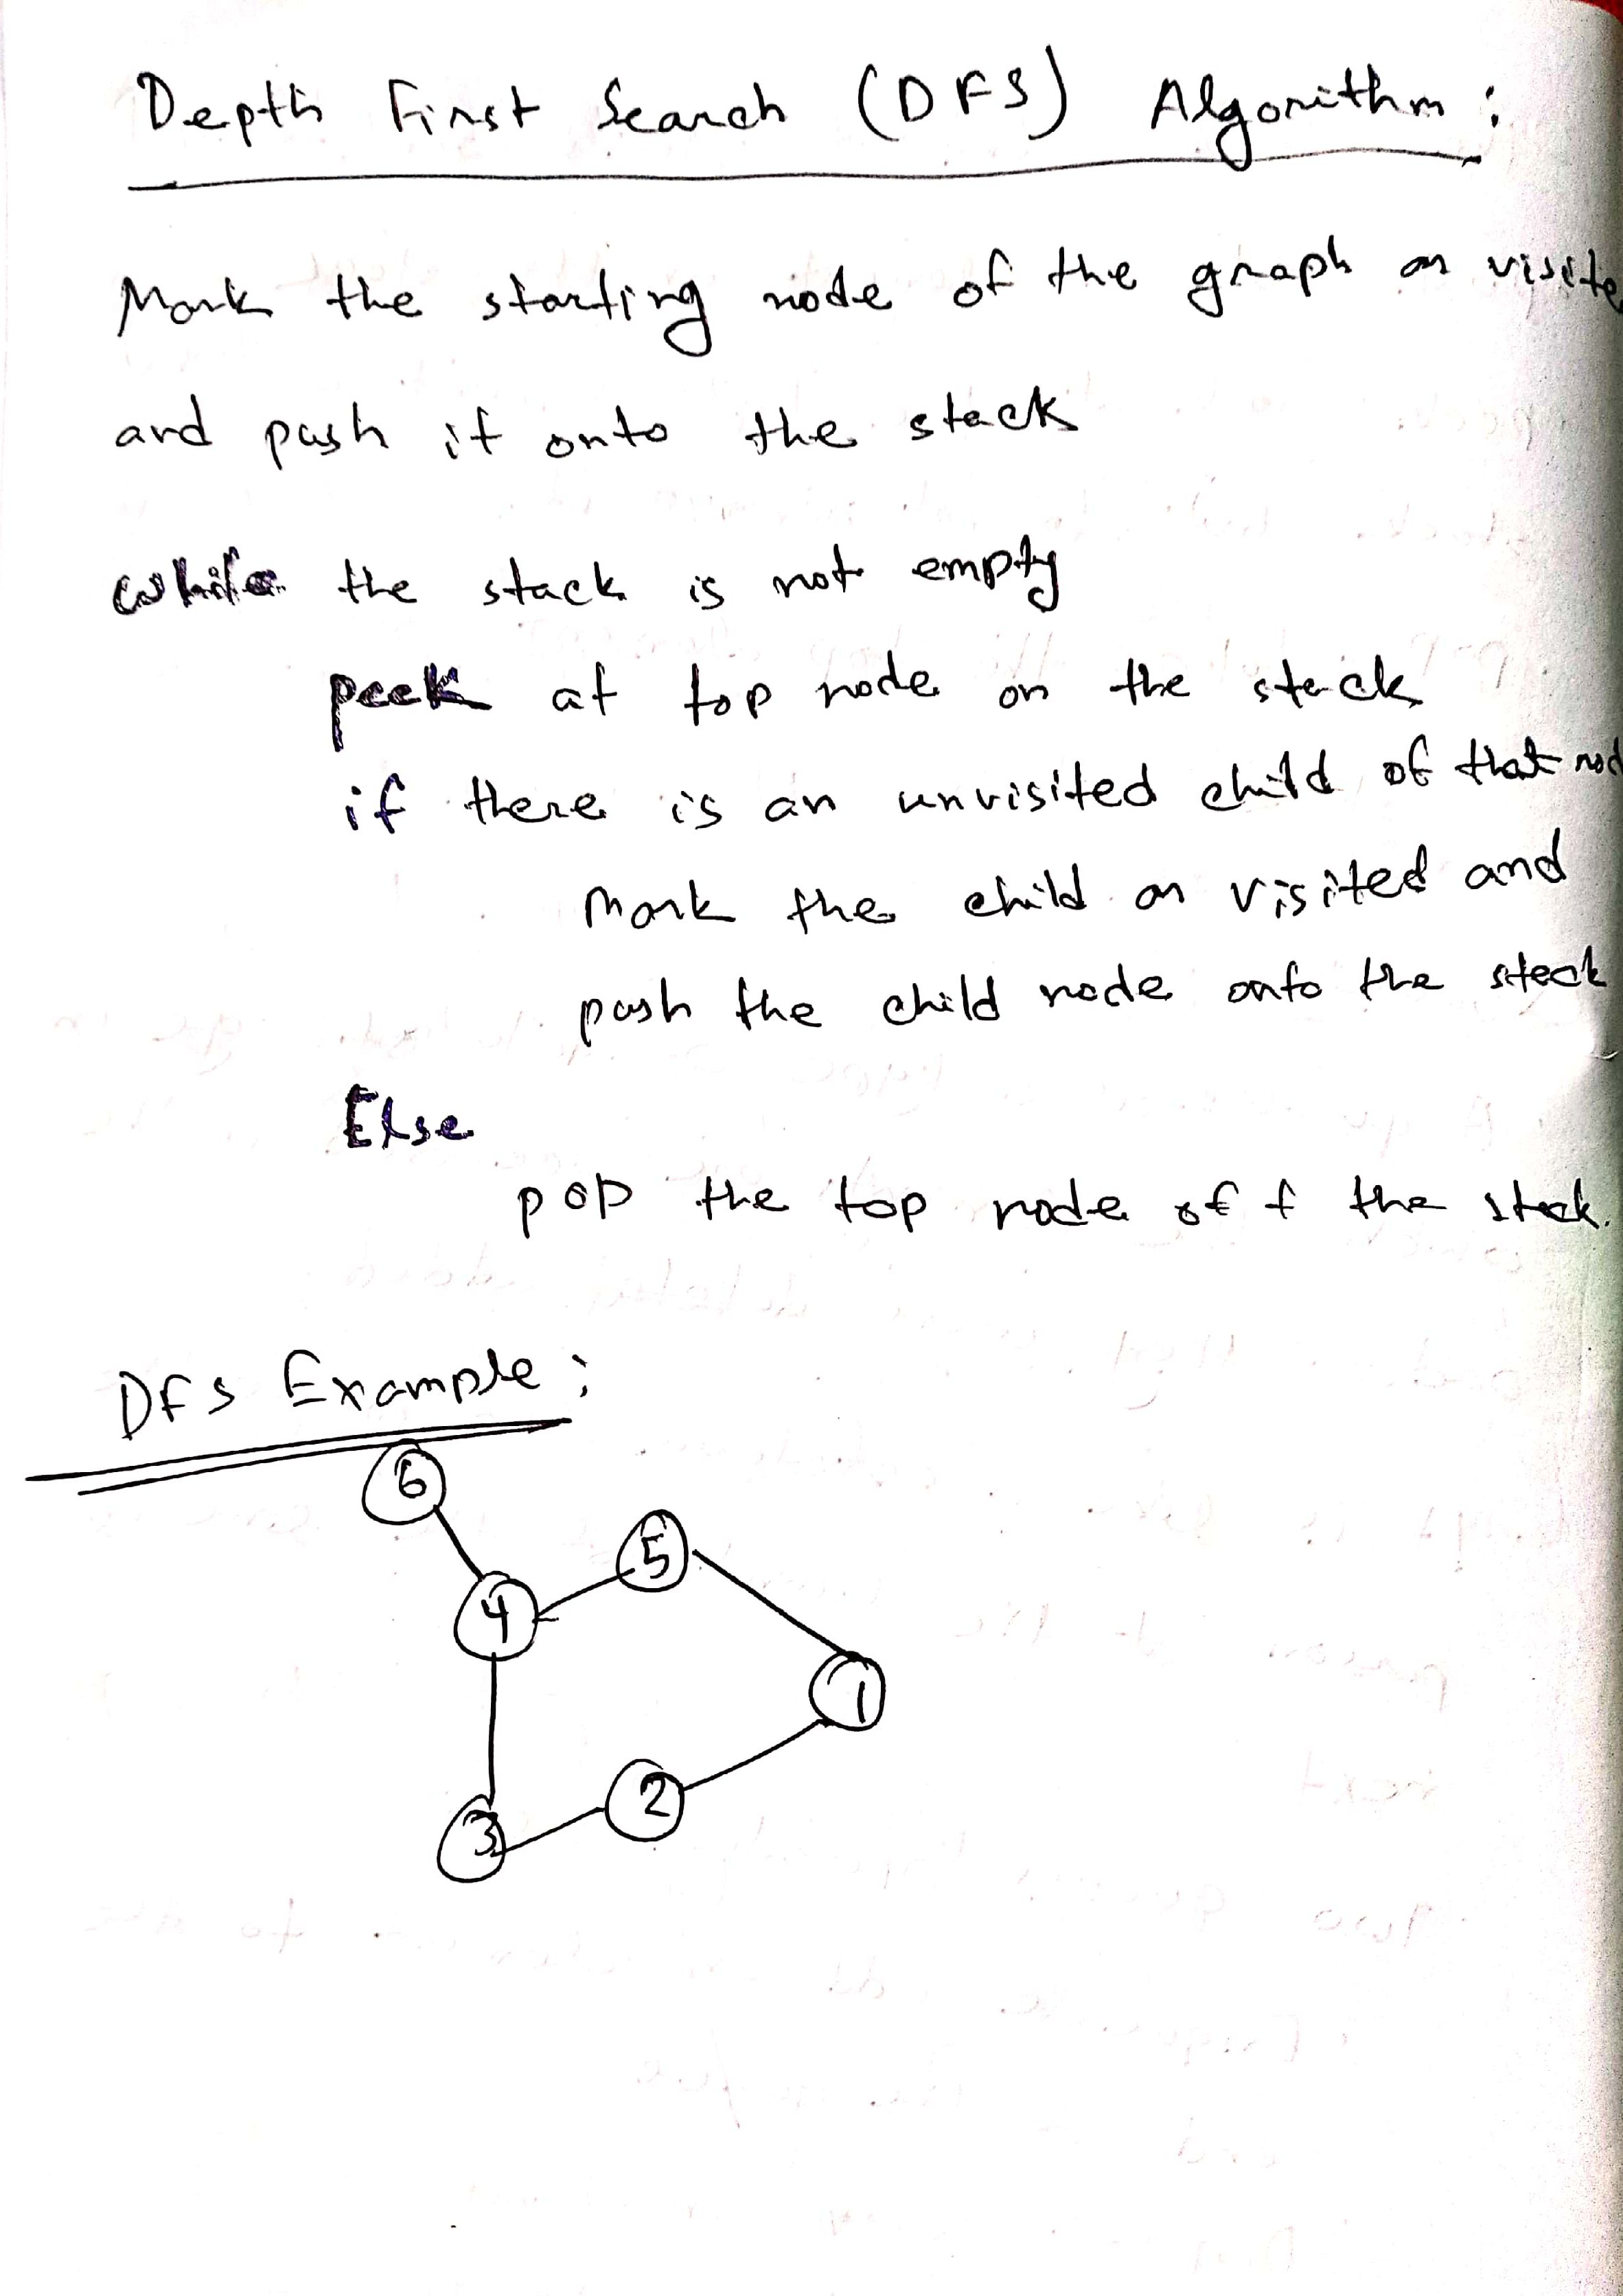 Depth First Search (DFS) Algorithm :
Mark the starting node of the graph as visite
and push it onto the stack
while the stack is not empty
peek at top node on the stack
if there is an unvisited child of that nod
Mark the child as visited and
push the child node onto the stack
Else
pop the top node off the stack.
DFS Example :
6
5
4
1
2
3